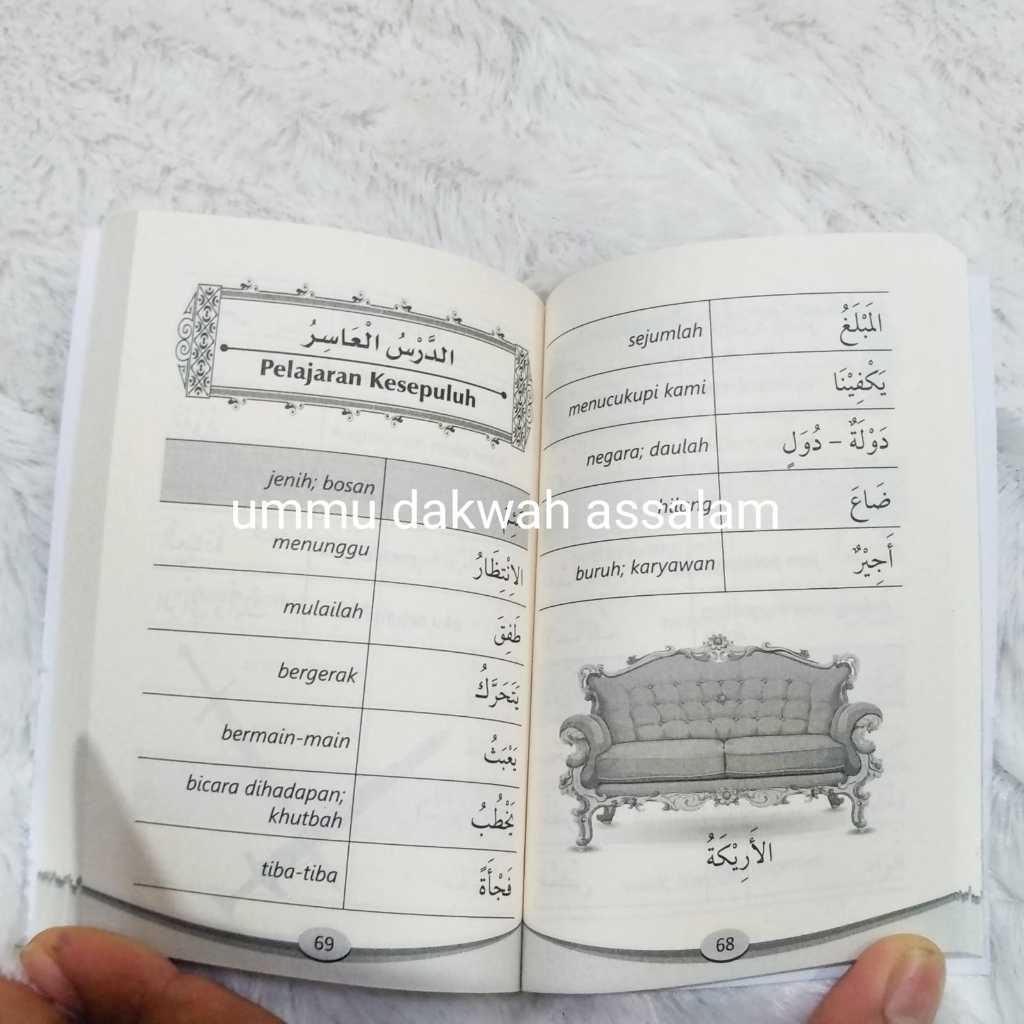 المَبْلَغُ sejumlah
يَكْفِيْنَا menucukupi kami
دَوْلَةٌ – دُوَلٍ negara; daulah
ضَاعَ hilang
أَجِيْرٌ buruh; karyawan
الأَرِيْكَةُ
68
الدَّرْسُ الْعَاسِرُ
Pelajaran Kesepuluh
jenih; bosan
الاِنْتِظَارُ menunggu
طَفِقَ mulailah
يَتَحَرَّكُ bergerak
يَعْبَثُ bermain-main
يَخْطُبُ bicara dihadapan;
khutbah
فَجْأَةً tiba-tiba
69
ummu dakwah assalam